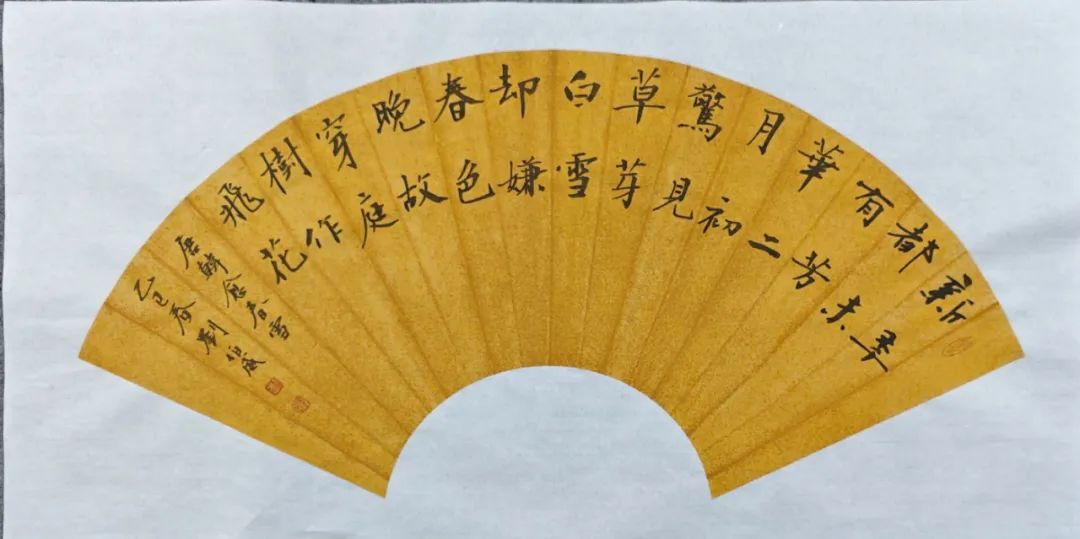 新年
都未
有芳
華二
月初
驚見
草芽
白雪
却嫌
春色
晚故
穿庭
樹作
飛花
唐韓愈春雪
乙巳春劉